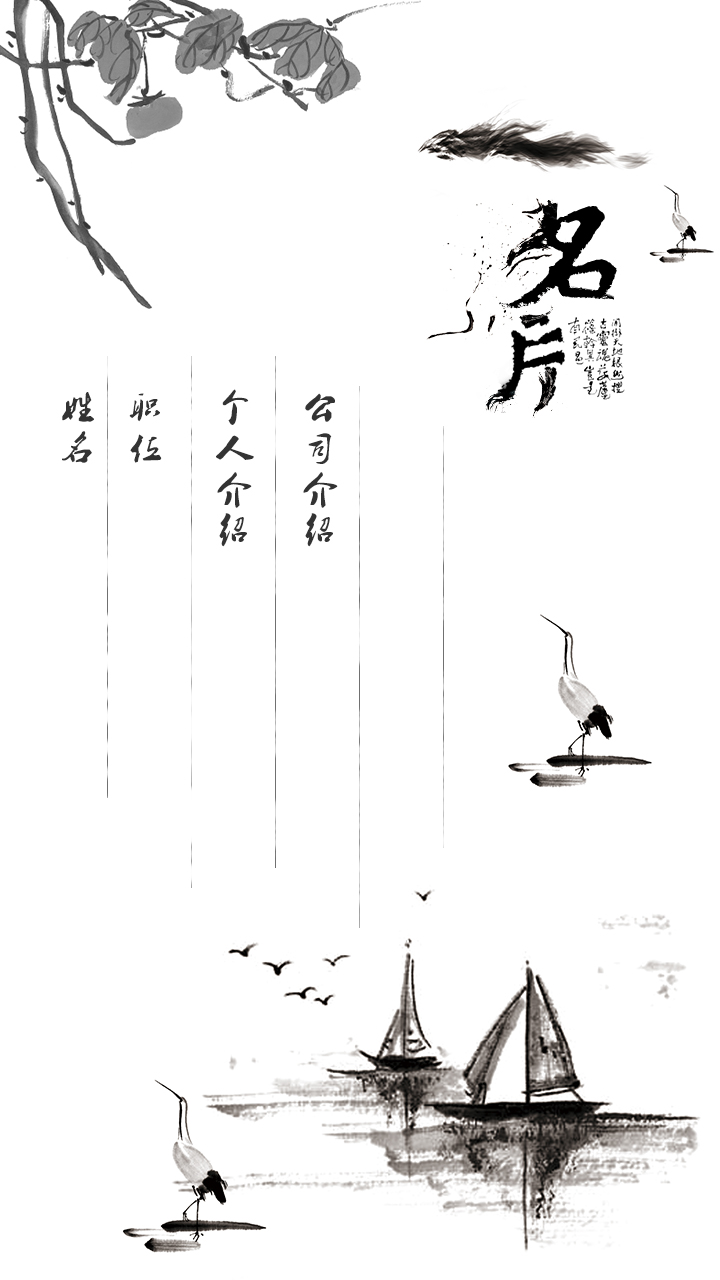 名片
公司介绍
个人介绍
职位
姓名